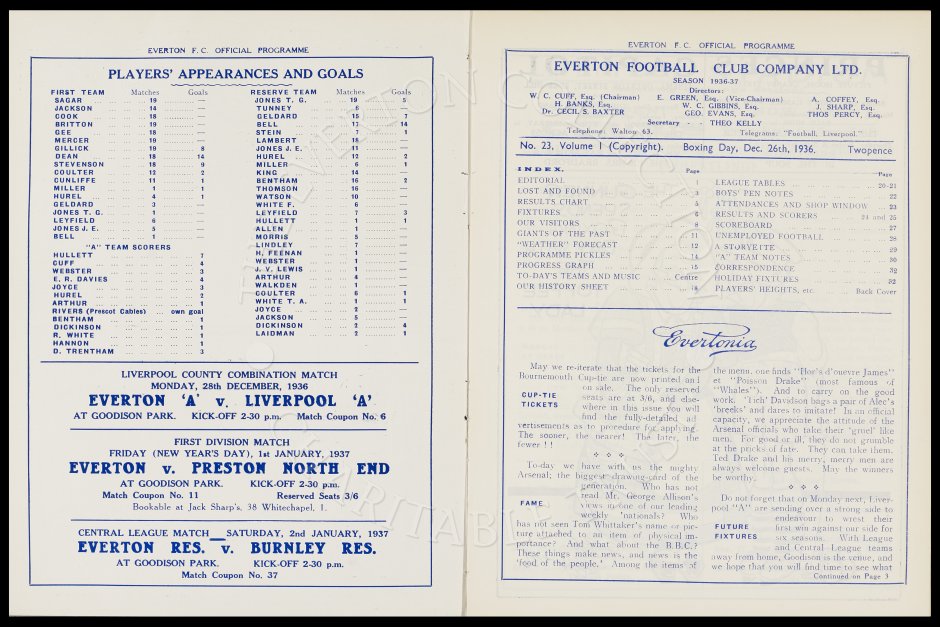 EVERTON F.C. OFFICIAL PROGRAMME
PLAYERS' APPEARANCES AND GOALS
FIRST TEAM Matches Goals
SAGAR 19 —
JACKSON 14 —
COOK 18 —
BRITTON 19 —
GEE 18 —
MERCER 19 —
GILLICK 19 8
DEAN 18 14
STEVENSON 18 9
COULTER 12 2
CUNLIFFE 11 1
MILLER 1 1
HUREL 4 1
GELDARD 3 —
JONES T. G. 1 —
LEYFIELD 6 —
JONES J. E. 5 —
BELL 1 —
"A" TEAM SCORERS
HULLETT 7
CUFF 4
WEBSTER 3
E. R. DAVIES 4
JOYCE 3
HUREL 2
ARTHUR 1
RIVERS (Prescot Cables) ... own goal
BENTHAM 1
DICKINSON 1
R. WHITE 1
HANNON 1
D. TRENTHAM 3
RESERVE TEAM Matches Goals
JONES T. G. 19 5
TUNNEY 6 —
GELDARD 15 7
BELL 17 14
STEIN 7 1
LAMBERT 18 —
JONES J. E. 11 —
HUREL 12 2
MILLER 6 1
KING 14 —
BENTHAM 16 2
THOMSON 16 —
WATSON 10 —
WHITE F. 6 —
LEYFIELD 7 3
HULLETT 1 1
ALLEN 1 —
MORRIS 5 —
LINDLEY 7 —
H. FEENAN 1 —
WEBSTER 1 —
J. V. LEWIS 1 —
ARTHUR 4 —
WALKDEN 1 —
COULTER 6 1
WHITE T. A. 1 1
JOYCE 2 —
JACKSON 5 —
DICKINSON 2 4
LAIDMAN 2 1
LIVERPOOL COUNTY COMBINATION MATCH
MONDAY, 28th DECEMBER, 1936
EVERTON 'A' v. LIVERPOOL 'A'
AT GOODISON PARK. KICK-OFF 2-30 p.m. Match Coupon No. 6
FIRST DIVISION MATCH
FRIDAY (NEW YEAR'S DAY), 1st JANUARY, 1937
EVERTON v. PRESTON NORTH END
AT GOODISON PARK. KICK-OFF 2-30 p.m.
Match Coupon No. 11 Reserved Seats 3/6
Bookable at Jack Sharp's, 38 Whitechapel, 1.
CENTRAL LEAGUE MATCH — SATURDAY, 2nd JANUARY, 1937
EVERTON RES. v. BURNLEY RES.
AT GOODISON PARK. KICK-OFF 2-30 p.m.
Match Coupon No. 37
EVERTON F.C. OFFICIAL PROGRAMME
EVERTON FOOTBALL CLUB COMPANY LTD.
SEASON 1936-37
Directors:
W. C. CUFF, Esq. (Chairman) E. GREEN, Esq. (Vice-Chairman) A. COFFEY, Esq.
H. BANKS, Esq. W. C. GIBBINS, Esq. J. SHARP, Esq.
Dr. CECIL S. BAXTER GEO. EVANS, Esq. THOS PERCY, Esq.
Secretary - - THEO KELLY
Telephone, Walton 63. Telegrams: "Football, Liverpool."
No. 23, Volume 1 (Copyright). Boxing Day, Dec. 26th, 1936. Twopence
INDEX. Page
EDITORIAL 1
LOST AND FOUND 3
RESULTS CHART 5
FIXTURES 6
OUR VISITORS 8
GIANTS OF THE PAST 11
"WEATHER" FORECAST 12
PROGRAMME PICKLES 14
PROGRESS GRAPH 15
TO-DAY'S TEAMS AND MUSIC Centre
OUR HISTORY SHEET 18
Page
LEAGUE TABLES 20-21
BOYS' PEN NOTES 22
ATTENDANCES AND SHOP WINDOW 23
RESULTS AND SCORERS 24 and 25
SCOREBOARD 27
UNEMPLOYED FOOTBALL 28
A STORYETTE 29
"A" TEAM NOTES 30
CORRESPONDENCE 32
HOLIDAY FIXTURES 32
PLAYERS' HEIGHTS, etc. Back Cover
Evertonia
May we re-iterate that the tickets for the
Bournemouth Cup-tie are now printed and
on sale. The only reserved
CUP-TIE seats are at 3/6, and else-
TICKETS where in this issue you will
find the fully-detailed ad-
vertisements as to procedure for applying.
The sooner, the nearer! The later, the
fewer!!
To-day we have with us the mighty
Arsenal; the biggest drawing-card of the
generation. Who has not
FAME read Mr. George Allison's
views in one of our leading
weekly 'nationals? Who
has not seen Tom Whittaker's name or pic-
ture attached to an item of physical im-
portance? And what about the B.B.C.?
These things make news, and news is the
'food of the people.' Among the items of
the menu, one finds "Hor's d'ouevre James"
et "Poisson Drake" (most famous of
"Whales"). And to carry on the good
work, 'Tich' Davidson bags a pair of Alec's
'breeks' and dares to imitate! In an official
capacity, we appreciate the attitude of the
Arsenal officials who take their "gruel" like
men. For good or ill, they do not grumble
at the pricks of fate. They can take them.
Ted Drake and his merry, merry men are
always welcome guests. May the winners
be worthy.
Do not forget that on Monday next, Liver-
pool "A" are sending over a strong side to
endeavour to wrest their
FUTURE first win against our side for
FIXTURES six seasons. With League
and Central League teams
away from home, Goodison is the venue, and
we hope that you will find time to see what
Continued on Page 3